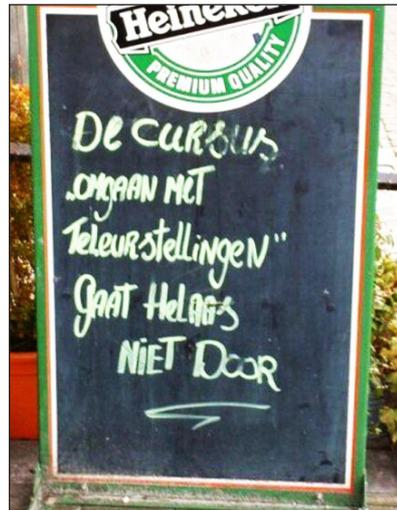 Heineken
PREMIUM QUALITY
De CURSUS
„OMGAAN MET
TeleURstellingeN"
GAAT HelAAS
NiET DOOR